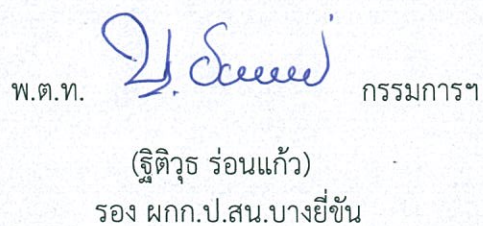 พ.ต.ท. กรรมการฯ
(ฐิติวุธ ร่อนแก้ว)
รอง ผกก.ป.สน.บางยี่ขัน